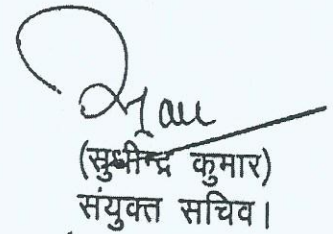 (सुधीन्द्र कुमार)
संयुक्त सचिव।